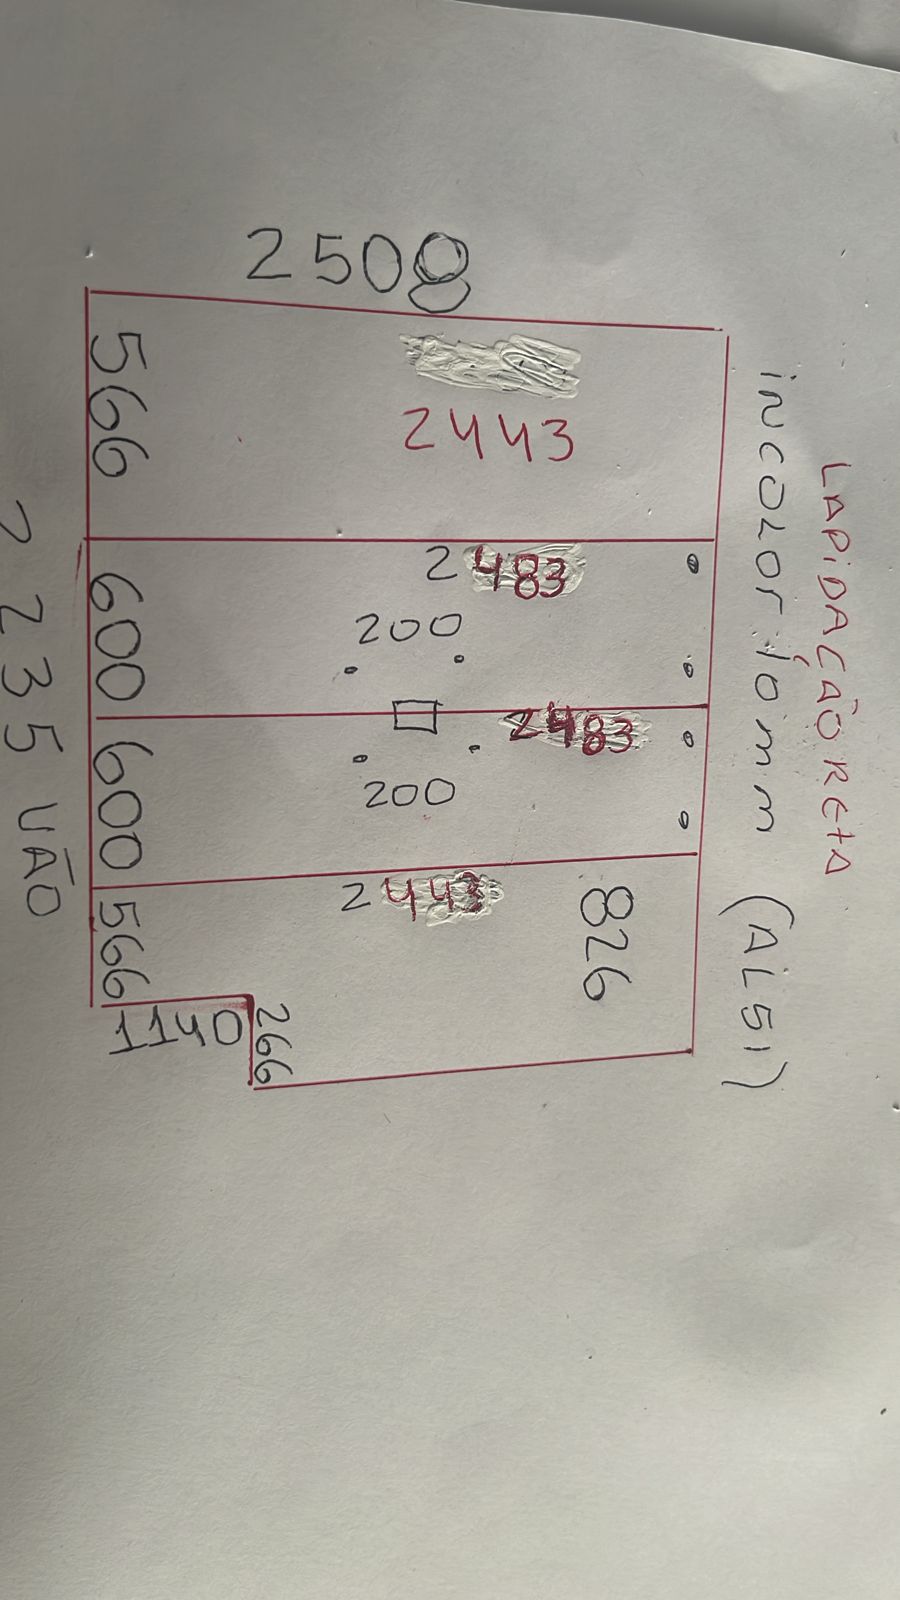 LAPIDAÇÃO RETA
iNCOLOr 10mm (AL51)
826
2508
2443
2483
2483
2443
200
200
266
1140
566
600
600
566
2235 VÃO